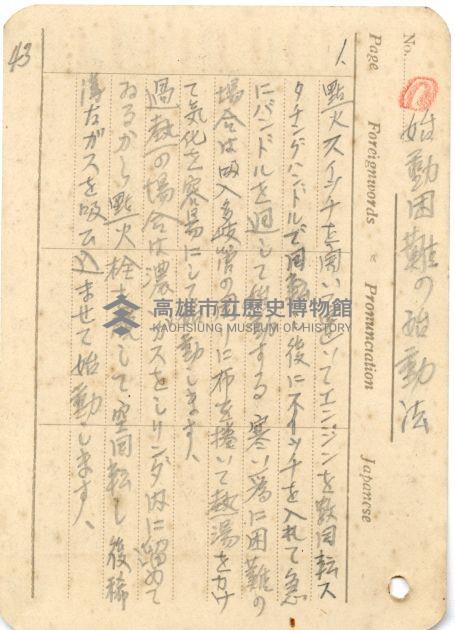 No.
Page
Foreignwords
Pronunciation
Japanese
始動困難の始動法
1、點火スイッチを開いて置いてエンジンを数回転ス
タチングハンドルで回転し後にスイッチを入れて急
にハンドルを廻して始動する 寒い為に困難の
場合は吸入多岐管の周りに布を捲いて熱湯をかけ
て気化を容易にして始動します、
過熱の場合は濃いガスをシリンダ内に留めて
ゐるから點火栓を して空回転し後稀
薄なガスを吸ひ込ませて始動します、
43
高雄市立歷史博物館
KAOHSIUNG MUSEUM OF HISTORY